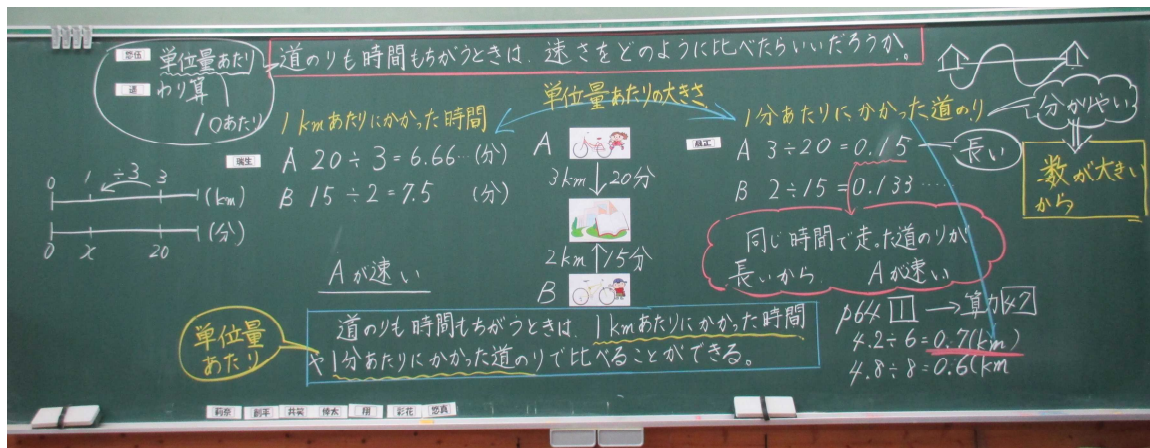 単位量あたり
わり算
1あたり
道のりも時間もちがうときは、速さをどのように比べたらいいだろうか。
単位量あたりの大きさ
1kmあたりにかかった時間
瑞生
A 20÷3=6.66…(分)
B 15÷2=7.5 (分)
Aが速い
0 1 3 (km)
÷3
0 x 20 (分)
A
3km 20分
2km 15分
B
1分あたりにかかった道のり
A 3÷20=0.15
B 2÷15=0.133……
長い
分かりやすい
数が大きい
から
同じ時間で走った道のりが
長いから Aが速い
p64 1 →算力42
4.2÷6=0.7(km)
4.8÷8=0.6(km
単位量
あたり
道のりも時間もちがうときは、1kmあたりにかかった時間
や1分あたりにかかった道のりで比べることができる。
莉奈 創平 共笑 倖太 翔 彩花 悠真